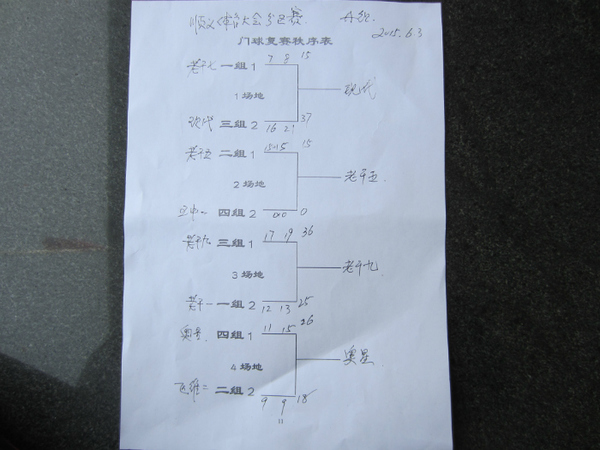 顺义体育大会分区赛 A组
门球复赛秩序表 2015.6.3
老干七 一组 1 7 8 15
1 场地 现代
现代 三组 2 16 21 37
老干五 二组 1 15 15
2 场地 老干五
四组 2 0 0 0
老干九 三组 1 17 19 36
3 场地 老干九
老干一 一组 2 12 13 25
奥星 四组 1 11 15 26
4 场地 奥星
二组 2 9 9 18
11